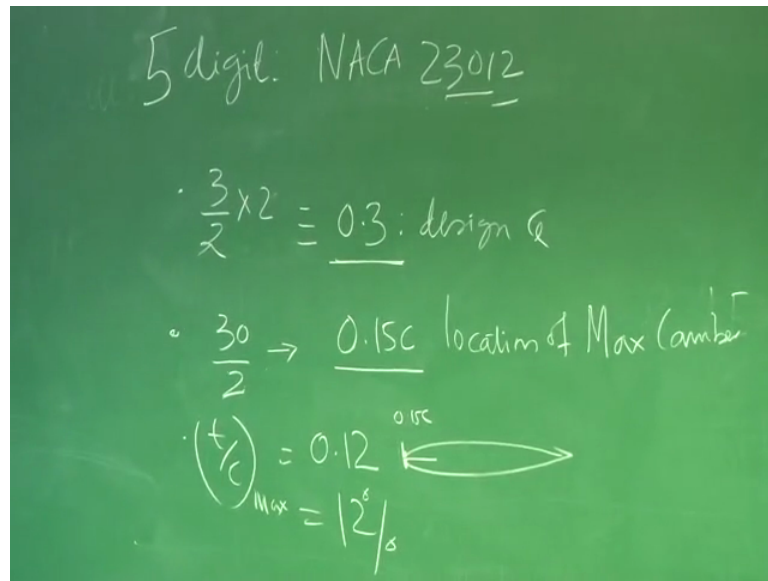 5 digit: NACA 23012
· 3/2 × 2 ≡ 0.3 : design Cl
· 30/2 → 0.15c location of Max Camber
0.15c
· (t/c)Max = 0.12
= 12%